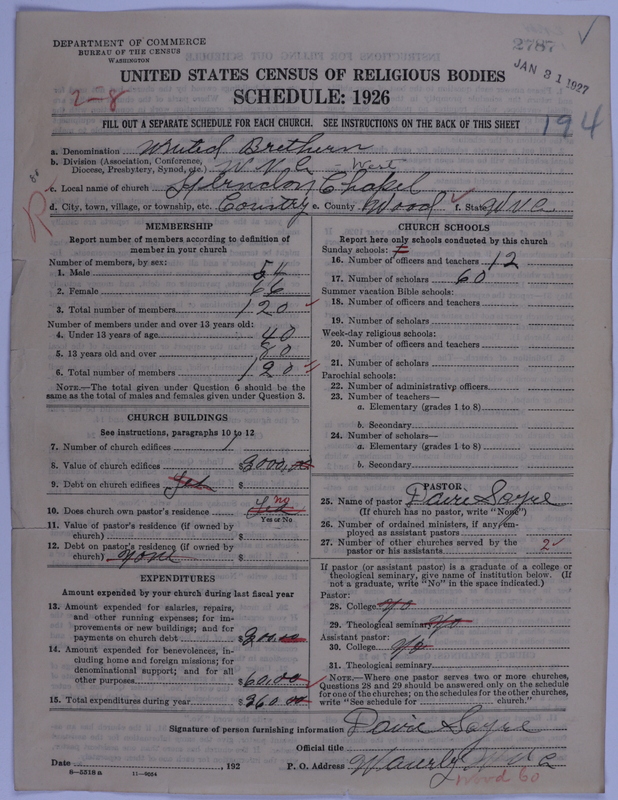 DEPARTMENT OF COMMERCE
BUREAU OF THE CENSUS
WASHINGTON
2787
JAN 31 1927
UNITED STATES CENSUS OF RELIGIOUS BODIES
2-8
SCHEDULE: 1926
FILL OUT A SEPARATE SCHEDULE FOR EACH CHURCH. SEE INSTRUCTIONS ON THE BACK OF THIS SHEET
194
a. Denomination United Brethern
b. Division (Association, Conference, Diocese, Presbytery, Synod, etc.) W VA - West
c. Local name of church Herndon Chapel
d. City, town, village, or township, etc. Country e. County Wood f. State W VA
MEMBERSHIP
Report number of members according to definition of
member in your church
Number of members, by sex:
1. Male 54
2. Female 66
3. Total number of members 120
Number of members under and over 13 years old:
4. Under 13 years of age 40
5. 13 years old and over 80
6. Total number of members 120
NOTE.—The total given under Question 6 should be the
same as the total of males and females given under Question 3.
CHURCH BUILDINGS
See instructions, paragraphs 10 to 12
7. Number of church edifices 1
8. Value of church edifices $3000.00
9. Debt on church edifices yes $
10. Does church own pastor's residence yes no
Yes or No
11. Value of pastor's residence (if owned by
church) $
12. Debt on pastor's residence (if owned by
church) none $
EXPENDITURES
Amount expended by your church during last fiscal year
13. Amount expended for salaries, repairs,
and other running expenses; for im-
provements or new buildings; and for
payments on church debt $300.00
14. Amount expended for benevolences, in-
cluding home and foreign missions; for
denominational support; and for all
other purposes $60.00
15. Total expenditures during year $360.00
CHURCH SCHOOLS
Report here only schools conducted by this church
Sunday schools:
16. Number of officers and teachers 12
17. Number of scholars 60
Summer vacation Bible schools:
18. Number of officers and teachers
19. Number of scholars
Week-day religious schools:
20. Number of officers and teachers
21. Number of scholars
Parochial schools:
22. Number of administrative officers
23. Number of teachers—
a. Elementary (grades 1 to 8)
b. Secondary
24. Number of scholars—
a. Elementary (grades 1 to 8)
b. Secondary
PASTOR
25. Name of pastor Davie Sayre
(If church has no pastor, write "None")
26. Number of ordained ministers, if any, em-
ployed as assistant pastors
27. Number of other churches served by the
pastor or his assistants 2
If pastor (or assistant pastor) is a graduate of a college or
theological seminary, give name of institution below. (If
not a graduate, write "No" in the space indicated.)
Pastor:
28. College No
29. Theological seminary No
Assistant pastor:
30. College No
31. Theological seminary
NOTE.—Where one pastor serves two or more churches,
Questions 28 and 29 should be answered only on the schedule
for one of the churches; on the schedules for the other churches,
write "See schedule for church."
Signature of person furnishing information Davie Sayre
Official title
Date , 192 P. O. Address Waverly W Va
8-5518 a 11-9024
Wood 60